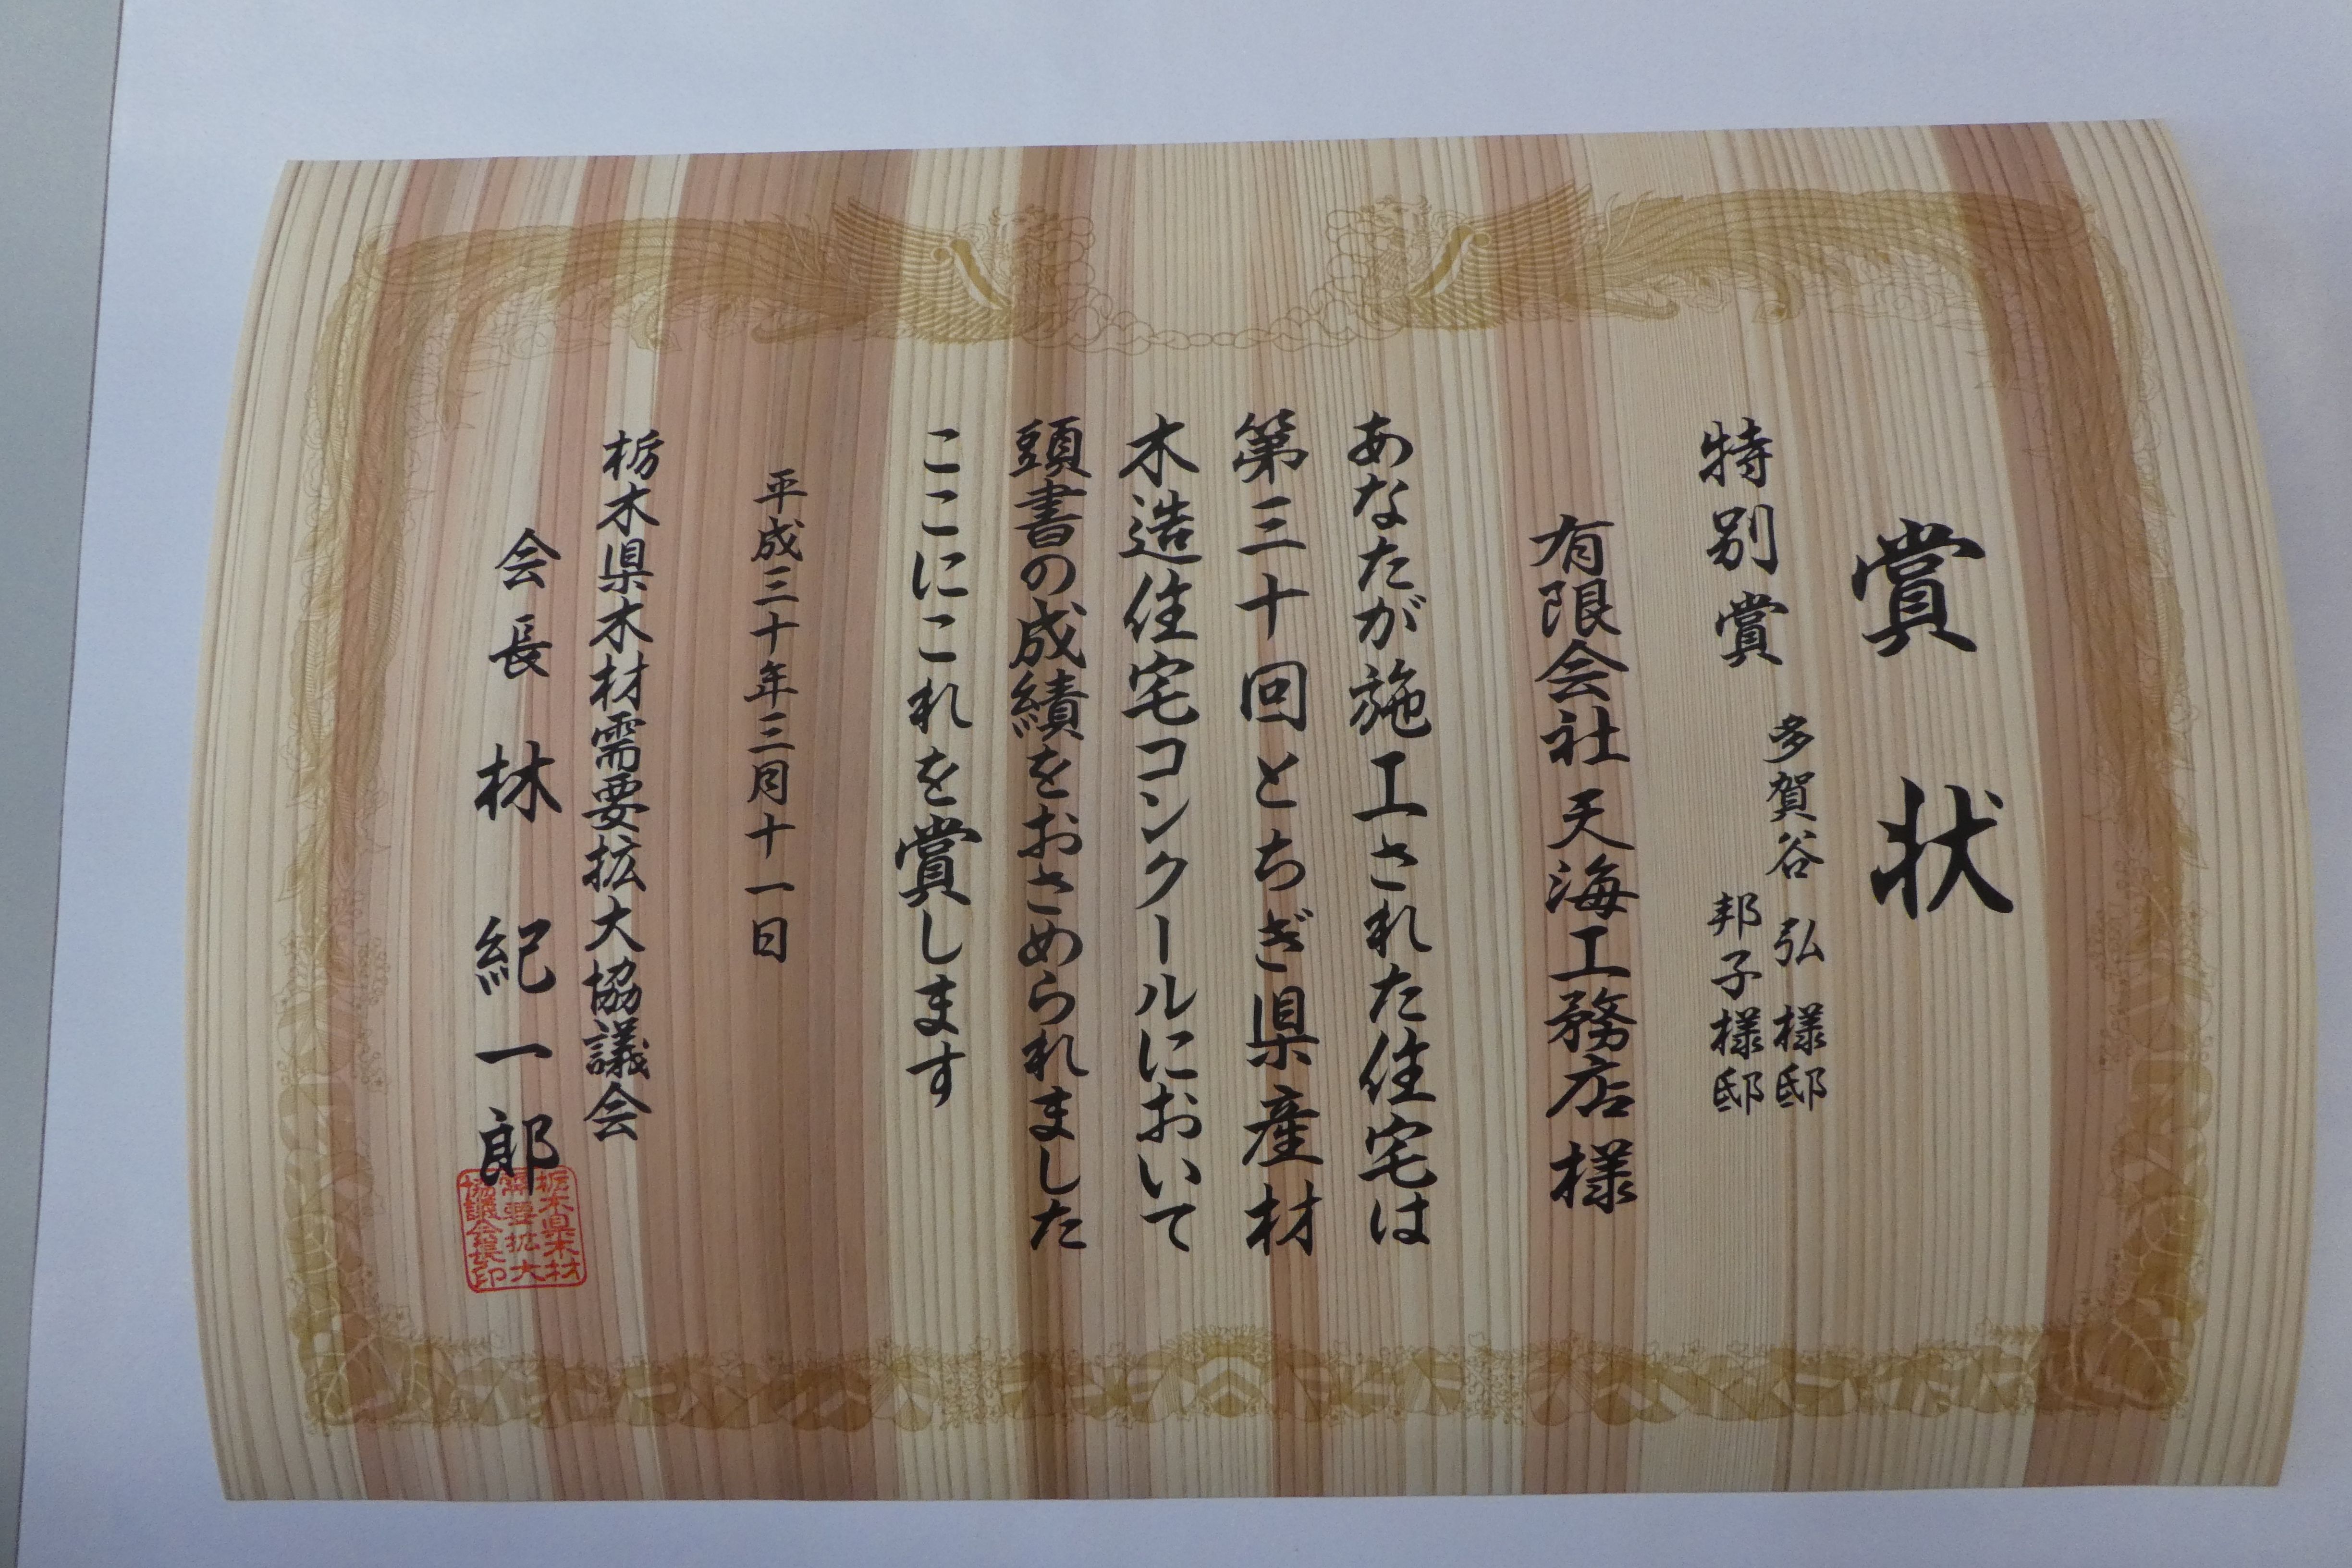 賞状
特別賞
多賀谷 弘 様邸
邦子様邸
有限会社 天海工務店 様
あなたが施工された住宅は
第三十回とちぎ県産材
木造住宅コンクールにおいて
頭書の成績をおさめられました
ここにこれを賞します
平成三十年三月十一日
栃木県木材需要拡大協議会
会長 林 紀一郎
栃木県木材
需要拡大
協議会長印